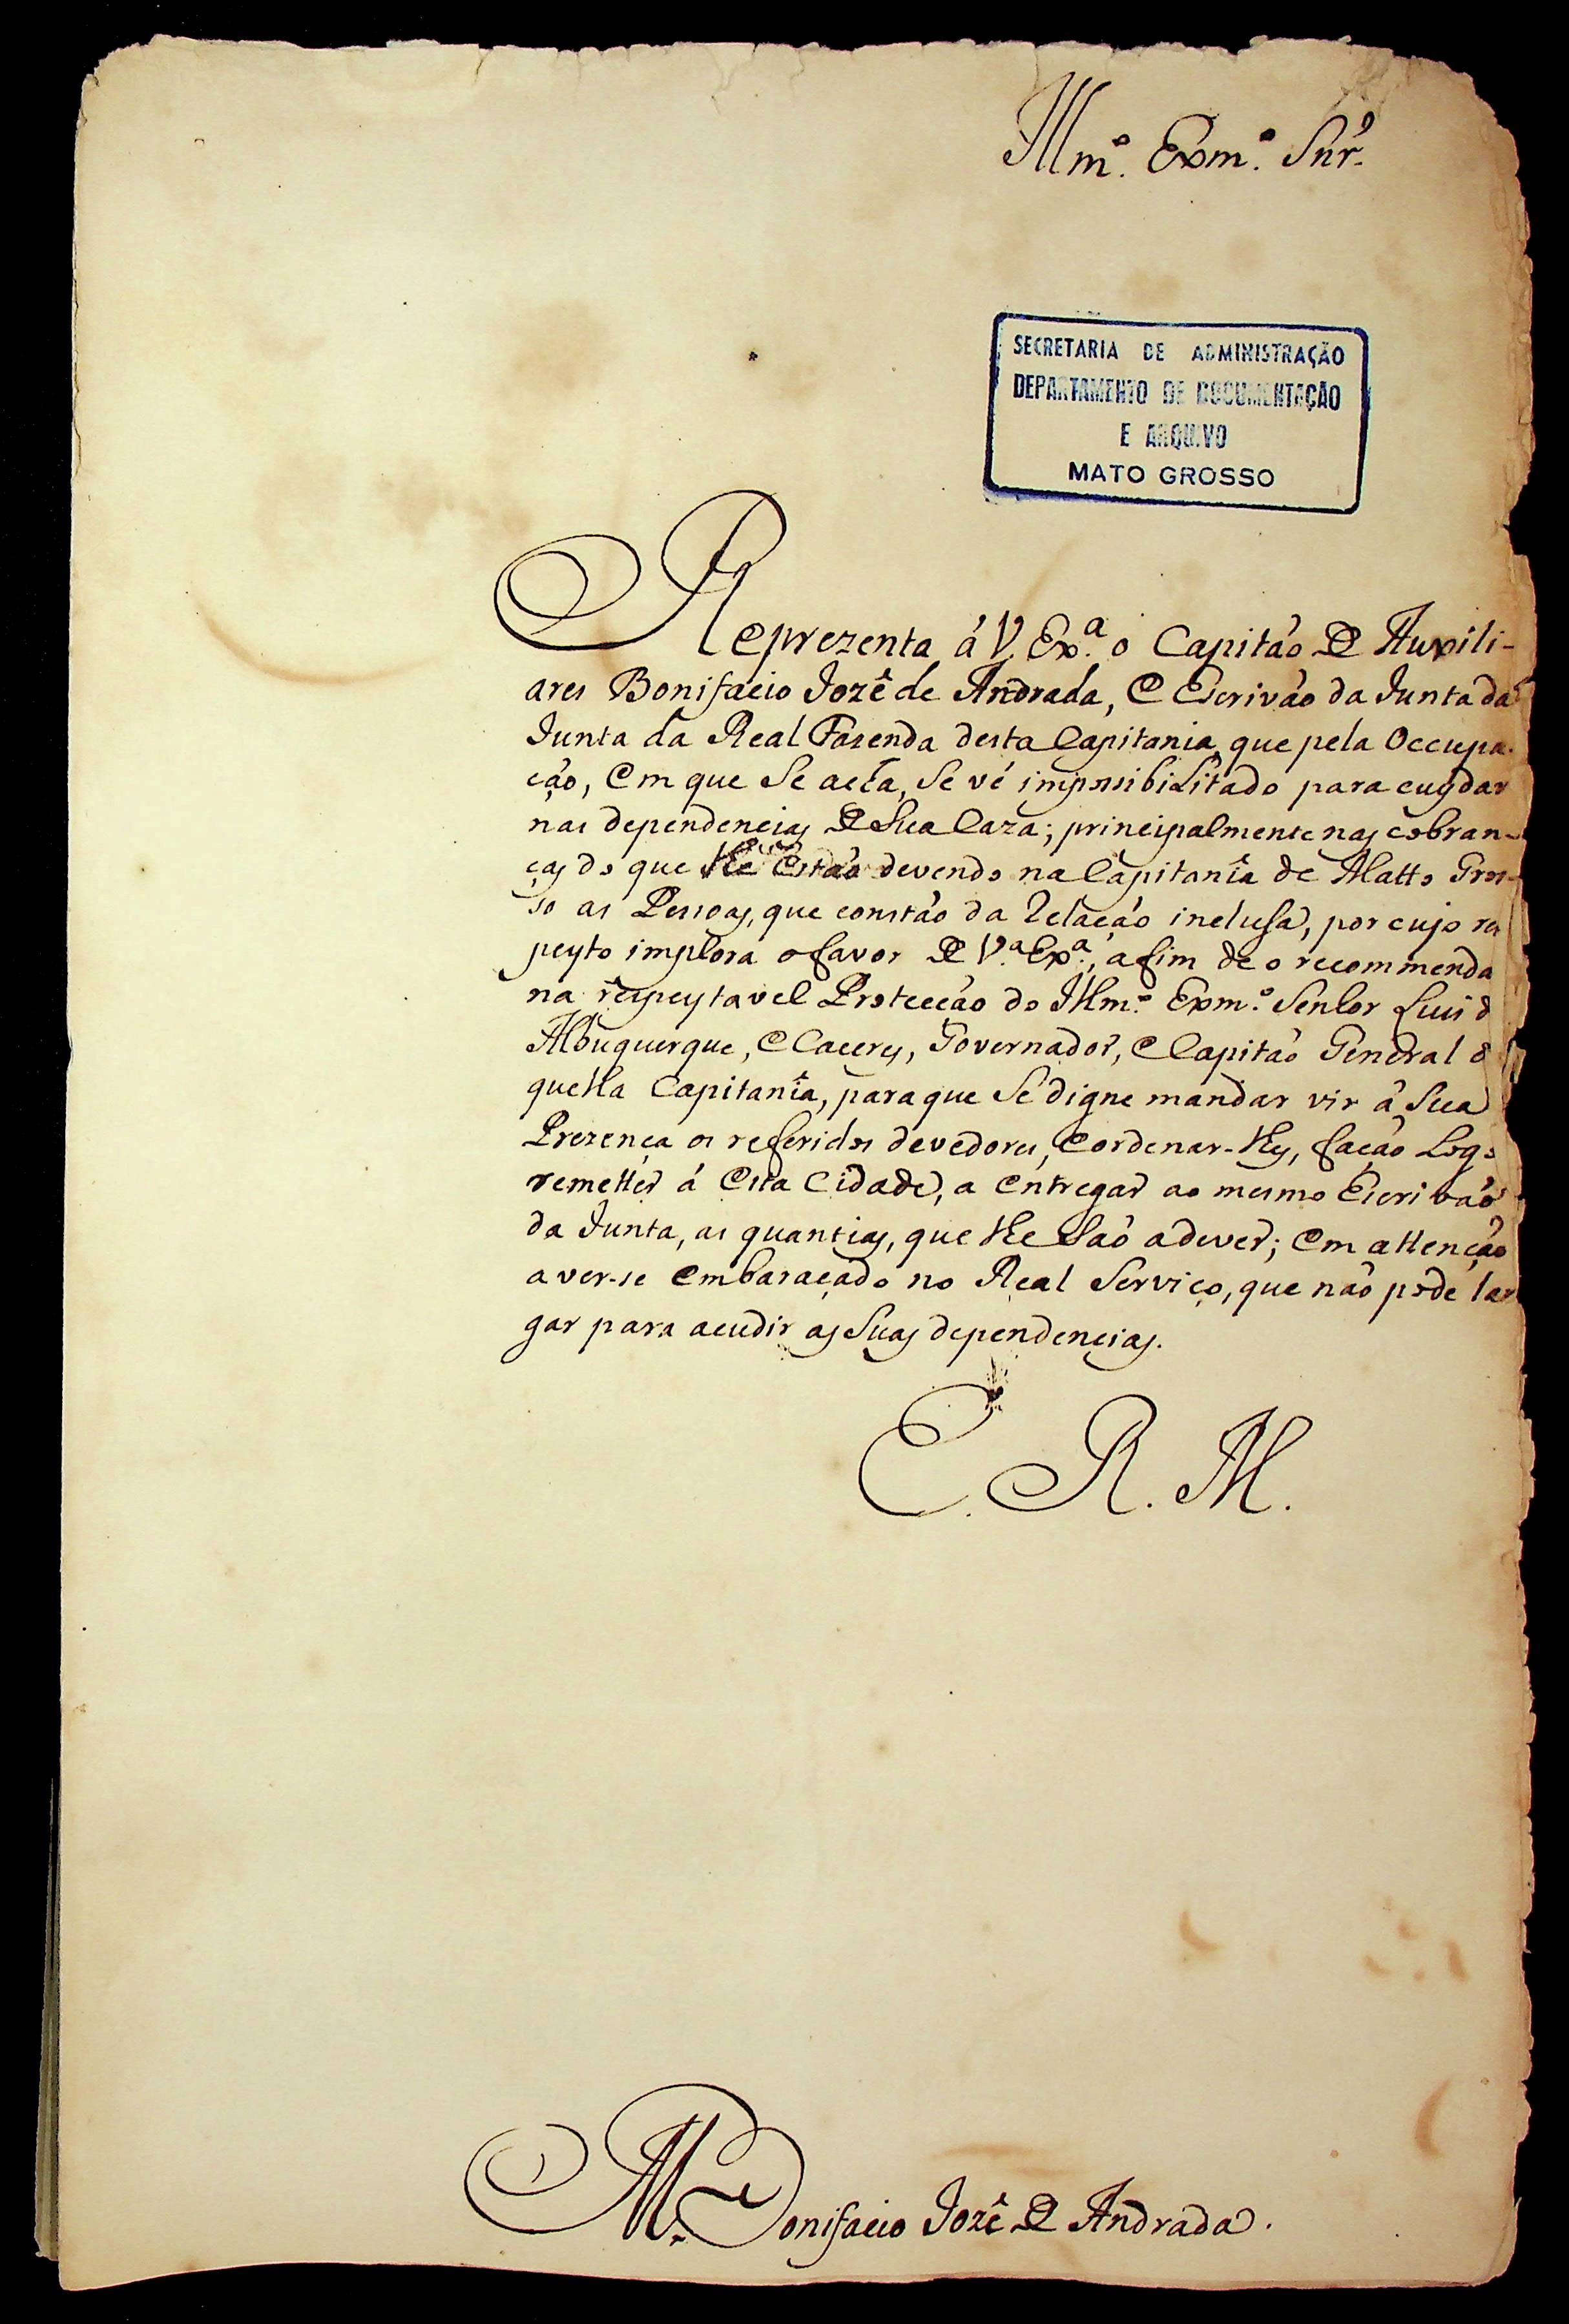 Illm.º Exm.º Snr.
SECRETARIA DE ADMINISTRAÇÃO
DEPARTAMENTO DE DOCUMENTAÇÃO
E ARQUIVO
MATO GROSSO
Reprezenta á V. Exª. o Capitaõ de Auxili-
ares Bonifacio Jozê de Andrada, e Escrivaõ da Junta da
Junta da Real Fasenda desta Capitania, que pela Occupa-
çaõ, em que Se acha, Se vê impossibilitado para cuydar
nas dependencias de Sua Caza; principalmente nas cobran-
ças do que lhe Estaõ devendo na Capitanîa de Matto Gros-
so as Pessoas, que constaõ da Relaçaõ inclusa, por cujo res
peyto implora o favor de V.ª Exª., afim de o recommenda
na respeytavel Protecçaõ do Illm.º Exm.º Senhor Luis d
Albuquerque, e Caceres, Governador, e Capitaõ General d
quella Capitanîa, para que Se digne mandar vir á Sua
Prezença os referidos devedores, e ordenar-lhes, façaõ Logo
remetter á Esta Cidade, a entregar ao mesmo Escrivaõ
da Junta, as quantias, que lhe Saõ a dever; em attençaõ
a ver-se embaraçado no Real Serviço, que naõ pode lar
gar para acudir as Suas dependencias.
E. R. M.
Bonifacio Jozê de Andrada.